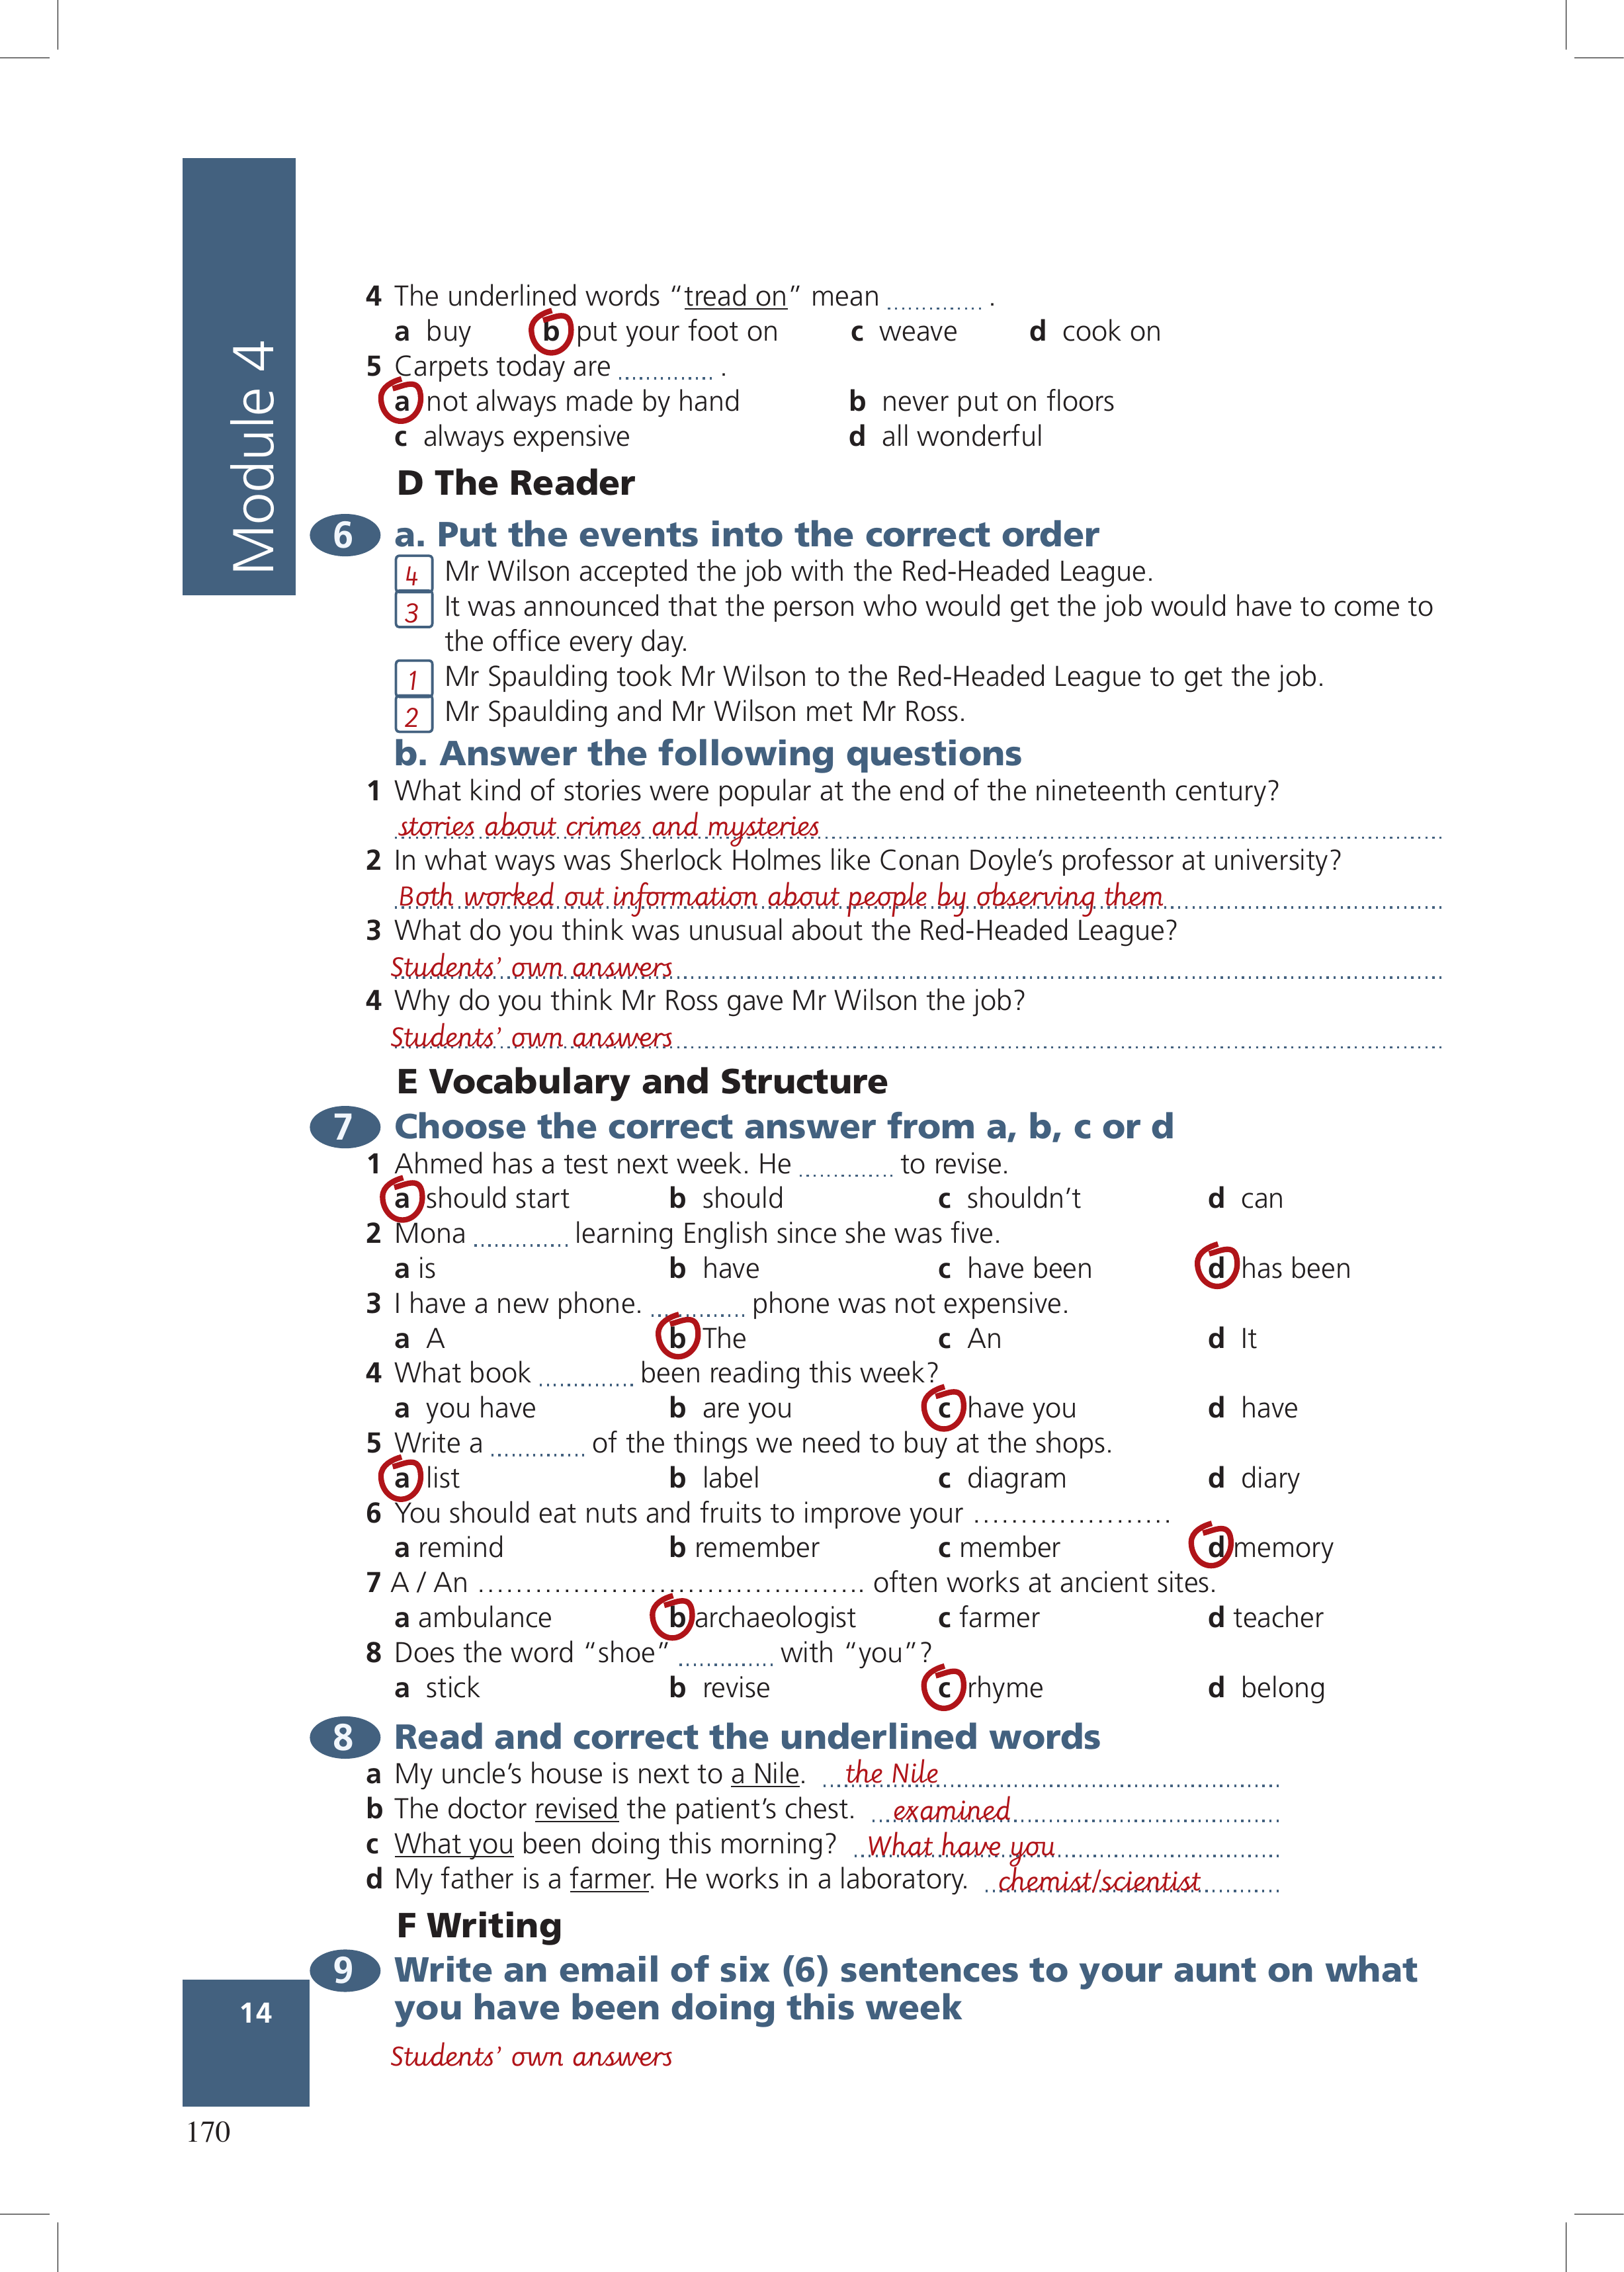 Module 4
4 The underlined words “tread on” mean .............. .
a buy b put your foot on c weave d cook on
5 Carpets today are .............. .
a not always made by hand b never put on floors
c always expensive d all wonderful
D The Reader
6 a. Put the events into the correct order
4 Mr Wilson accepted the job with the Red-Headed League.
3 It was announced that the person who would get the job would have to come to
the office every day.
1 Mr Spaulding took Mr Wilson to the Red-Headed League to get the job.
2 Mr Spaulding and Mr Wilson met Mr Ross.
b. Answer the following questions
1 What kind of stories were popular at the end of the nineteenth century?
stories about crimes and mysteries
2 In what ways was Sherlock Holmes like Conan Doyle’s professor at university?
Both worked out information about people by observing them
3 What do you think was unusual about the Red-Headed League?
Students’ own answers
4 Why do you think Mr Ross gave Mr Wilson the job?
Students’ own answers
E Vocabulary and Structure
7 Choose the correct answer from a, b, c or d
1 Ahmed has a test next week. He .............. to revise.
a should start b should c shouldn’t d can
2 Mona .............. learning English since she was five.
a is b have c have been d has been
3 I have a new phone. .............. phone was not expensive.
a A b The c An d It
4 What book .............. been reading this week?
a you have b are you c have you d have
5 Write a .............. of the things we need to buy at the shops.
a list b label c diagram d diary
6 You should eat nuts and fruits to improve your .....................
a remind b remember c member d memory
7 A / An ......................................... often works at ancient sites.
a ambulance b archaeologist c farmer d teacher
8 Does the word “shoe” .............. with “you”?
a stick b revise c rhyme d belong
8 Read and correct the underlined words
a My uncle’s house is next to a Nile. the Nile
b The doctor revised the patient’s chest. examined
c What you been doing this morning? What have you
d My father is a farmer. He works in a laboratory. chemist/scientist
F Writing
9 Write an email of six (6) sentences to your aunt on what
you have been doing this week
Students’ own answers
14
170